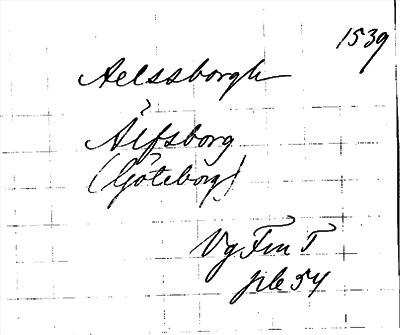 1539
Aelssborgh
Älfsborg
(Göteborg)
Vg Fru T
ple 54